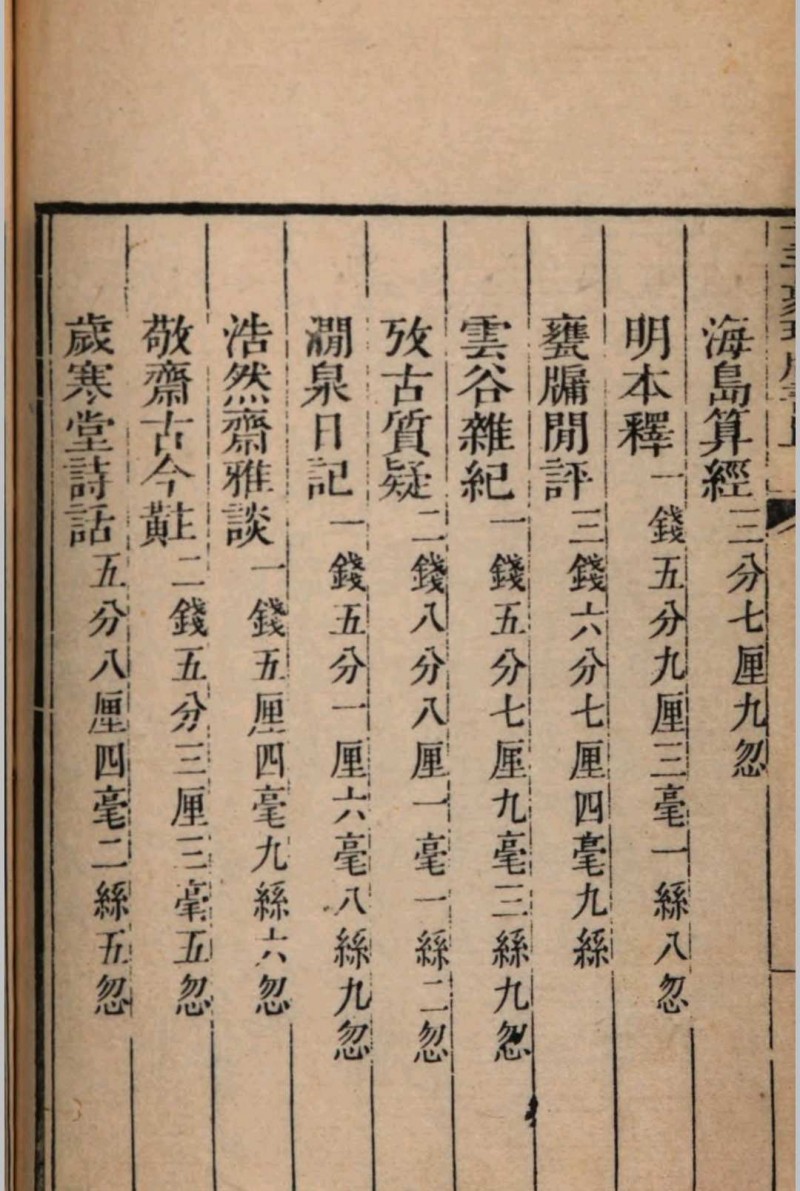 海島算經三分七厘九忽
明本釋一錢五分九厘三毫一絲八忽
甕牖閒評三錢六分七厘四毫九絲
雲谷雜紀一錢五分七厘九毫三絲九忽
攷古質疑二錢八分八厘一毫一絲二忽
澗泉日記一錢五分一厘六毫八絲九忽
浩然齋雅談一錢五厘四毫九絲六忽
敬齋古今黈二錢五分三厘三毫五忽
歲寒堂詩話五分八厘四毫二絲五忽